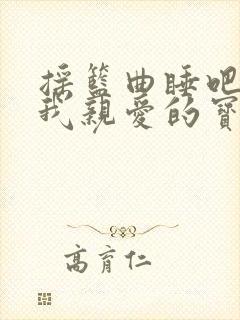 搖籃曲睡吧
我親愛的寶
高育仁